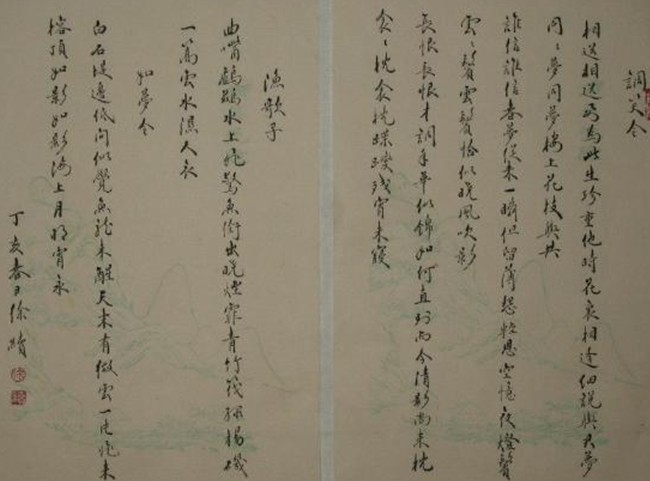 調笑令
相送相送乃為此生珍重他時花裏相逢細說與君夢
同〻夢同夢樓上花枝與共
誰信誰信春夢從來一瞬但留薄怨輕恩空憶夜燈鬢
雲〻鬢雲鬢恰似晚風吹影
長恨長恨才調年華似錦如何直到而今清影尚未枕
衾〻枕衾枕踝踆殘宵未寢
漁歌子
曲嘴鸕鷀水上飛驚魚銜出晚煙霏青竹筏綠楊磯
一蓑雲水濕人衣
如夢令
白石堤邊低問似覺魚龍未醒天末有微雲一片飛來
榕頂如影如影海上月明宵永
丁亥春日徐績